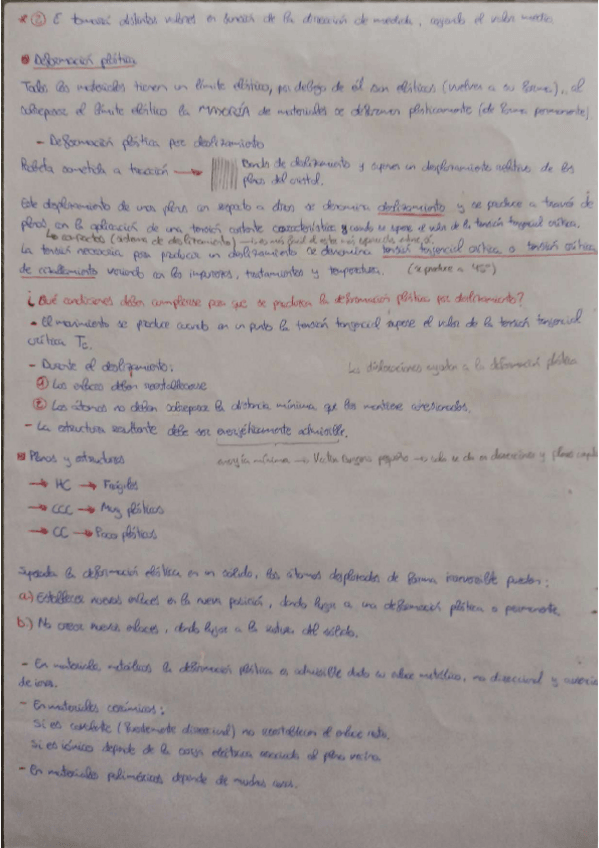 * ② E tomará distintos valores en función de la dirección de medida, cogiendo el valor medio
Deformación plástica
Todos los materiales tienen un límite elástico, por debajo de él son elásticos (vuelven a su forma), al
sobrepasar el límite elástico la MAYORÍA de materiales se deforman plásticamente (de forma permanente).
- Deformación plástica por deslizamiento
Probeta sometida a tracción → Banda de deslizamiento y supone un desplazamiento relativo de los
planos del cristal.
Este desplazamiento de unos planos con respecto a otros se denomina deslizamiento y se produce a través de
planos, en la aplicación de una tensión cortante característica y cuando se supera el valor de la tensión tangencial crítica.
(sistema de deslizamiento)
La tensión necesaria para producir un deslizamiento se denomina tensión tangencial crítica o tensión crítica
de cizallamiento variando con las impurezas, tratamientos y temperatura. (se produce a 45°)
¿Qué condiciones deben cumplirse para que se produzca la deformación plástica por deslizamiento?
- El movimiento se produce cuando en un punto la tensión tangencial supere el valor de la tensión tangencial
crítica Tc.
- Durante el deslizamiento: Las dislocaciones ayudan a la deformación plástica
① Los enlaces deben reestablecerse
② Los átomos no deben sobrepasar la distancia mínima que los mantiene cohesionados.
- La estructura resultante debe ser energéticamente admisible.
Planos y estructuras energía mínima → Vector burgers pequeño → se da en direcciones y planos
→ HC → Frágiles
→ CCC → Muy plásticos
→ CC → Poco plásticos
Superada la deformación elástica en un sólido, los átomos desplazados de forma irreversible pueden:
a) Establecer nuevos enlaces en la nueva posición, dando lugar a una deformación plástica o permanente
b) No crear nuevos enlaces, dando lugar a la rotura del sólido.
- En materiales metálicos la deformación plástica es admisible dado su enlace metálico, no direccional y ausencia
de iones.
- En materiales cerámicos:
Si es covalente (fuertemente direccional) no reestablecen el enlace roto.
Si es iónico depende de la carga eléctrica asociada al plano vecino.
- En materiales poliméricos depende de muchas cosas.